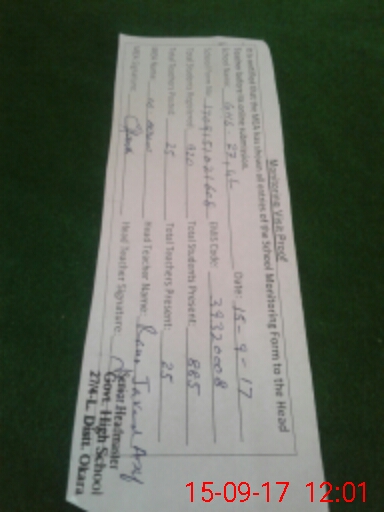 Monitoring Visit Proof
It is certified that the MEA has shown all entries of the School Monitoring Form to the Head
Teacher before its online submission.
Date: 15-9-17
School Name: GHS. 27/4L
EMIS Code: 39320008
Total Students Registered: 920 Total Students Present: 885
Total Teachers Posted: 25 Total Teachers Present: 25
MEA Name: Head Teacher Name: Rana Javed
MEA Signature: Head Teacher Signature:
Senior Headmaster
Govt. High School
27/4-L Distt. Okara
15-09-17 12:01